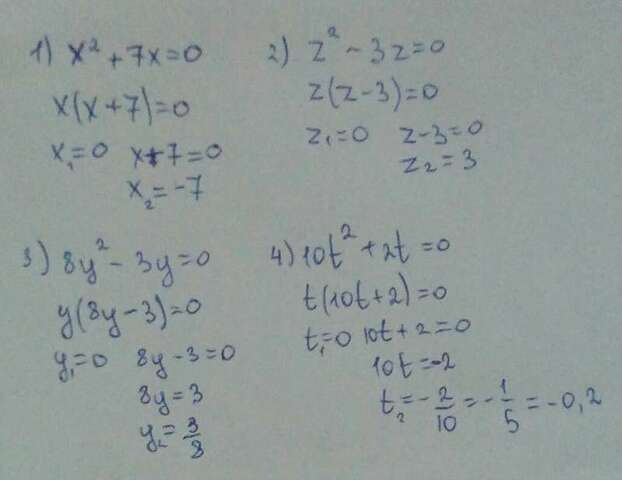 1) x² + 7x = 0
x(x + 7) = 0
x₁ = 0 x + 7 = 0
x₂ = -7
2) z² - 3z = 0
z(z - 3) = 0
z₁ = 0 z - 3 = 0
z₂ = 3
3) 8y² - 3y = 0
y(8y - 3) = 0
y₁ = 0 8y - 3 = 0
8y = 3
y₂ = 3/8
4) 10t² + 2t = 0
t(10t + 2) = 0
t₁ = 0 10t + 2 = 0
10t = -2
t₂ = -2/10 = -1/5 = -0,2